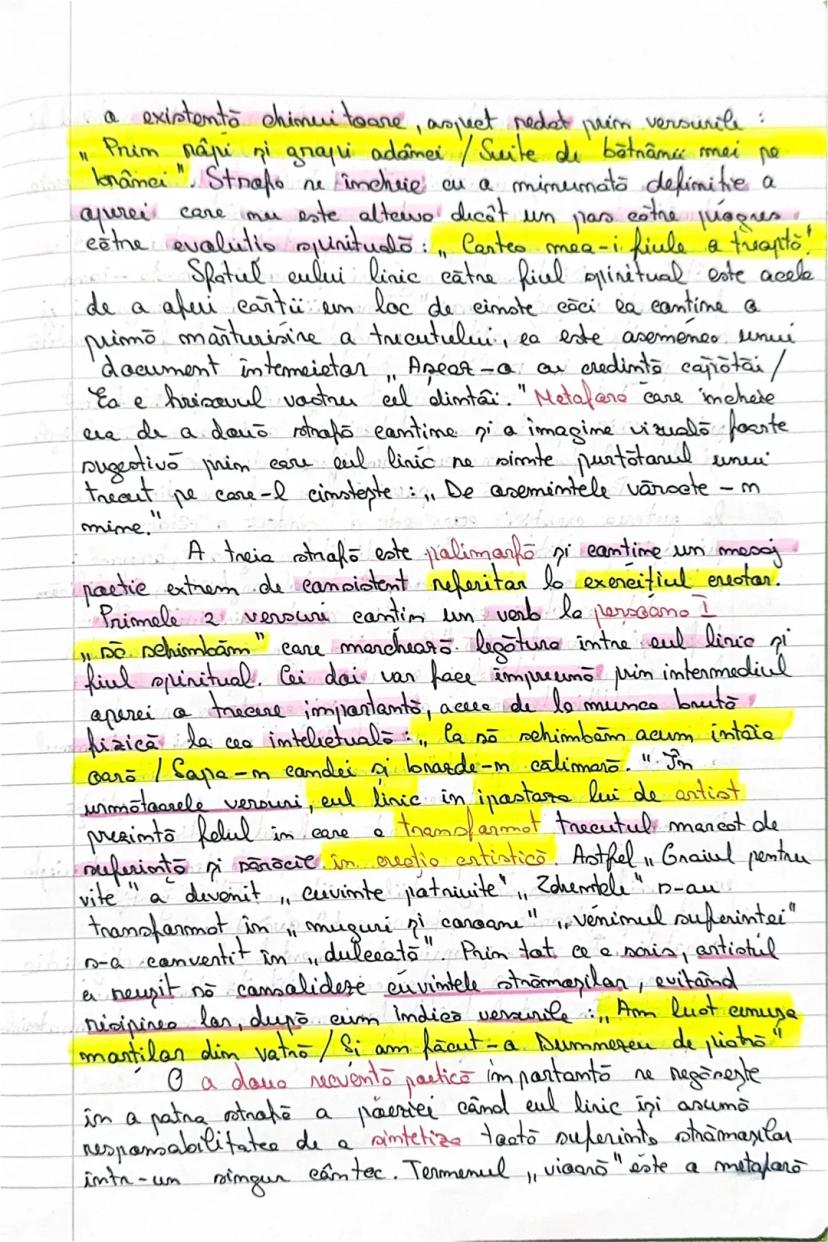 o existență chinuitoare, aspect redat prin versurile :
„ Prin râpi și gropi adânci / Suite de bătrânii mei pe
brânci". Strofa se încheie cu o minunată definiție a
operei care nu este altceva decât un pas către progres
către evoluția spirituală : „ Cartea mea-i fiule o treaptă."
Sfatul eului liric către fiul spiritual este acela
de a oferi cărții un loc de cinste căci ea conține o
primă mărturisire a trecutului, ea este asemenea unui
document întemeietor „ Așeaz-o cu credință căpătâi /
Ea e hrisovul vostru cel dintâi." Metafora care încheie
cea de a doua strofă conține și o imagine vizuală foarte
sugestivă prin care eul liric se simte purtătorul unui
trecut pe care-l cinstește : „ De osemintele vărsate-n
mine."
A treia strofă este palimorfă și conține un mesaj
poetic extrem de consistent referitor la exercițiul creator.
Primele 2 versuri conțin un verb la persoana I
„ să schimbăm" care marchează legătura între eul liric și
fiul spiritual. Cei doi vor face împreună prin intermediul
operei o trecere importantă, aceea de la munca brută
fizică la cea intelectuală : „ Ca să schimbăm acum întâia
oară / Sapa-n condei și brazda-n călimară. " În
următoarele versuri, eul liric în ipostaza lui de artist
prezintă felul în care a transformat trecutul marcat de
suferință și sărăcie în creație artistică. Astfel „ Graiul pentru
vite " a devenit „ cuvinte potrivite" „ Zdrențele" s-au
transformat în „ muguri și coroane" „ veninul suferinței"
s-a convertit în „ dulceață". Prin tot ce a scris, artistul
a reușit să consolideze cuvintele strămoșilor, evitând
risipirea lor, după cum indică versurile : „ Am luat cenușa
morților din vatră / Și am făcut-o Dumnezeu de piatră"
O a doua secvență poetică importantă se regăsește
în a patra strofă a poeziei când eul liric își asumă
responsabilitatea de a sintetiza toată suferința strămoșilor
într-un singur cântec. Termenul „ vioară" este o metaforă